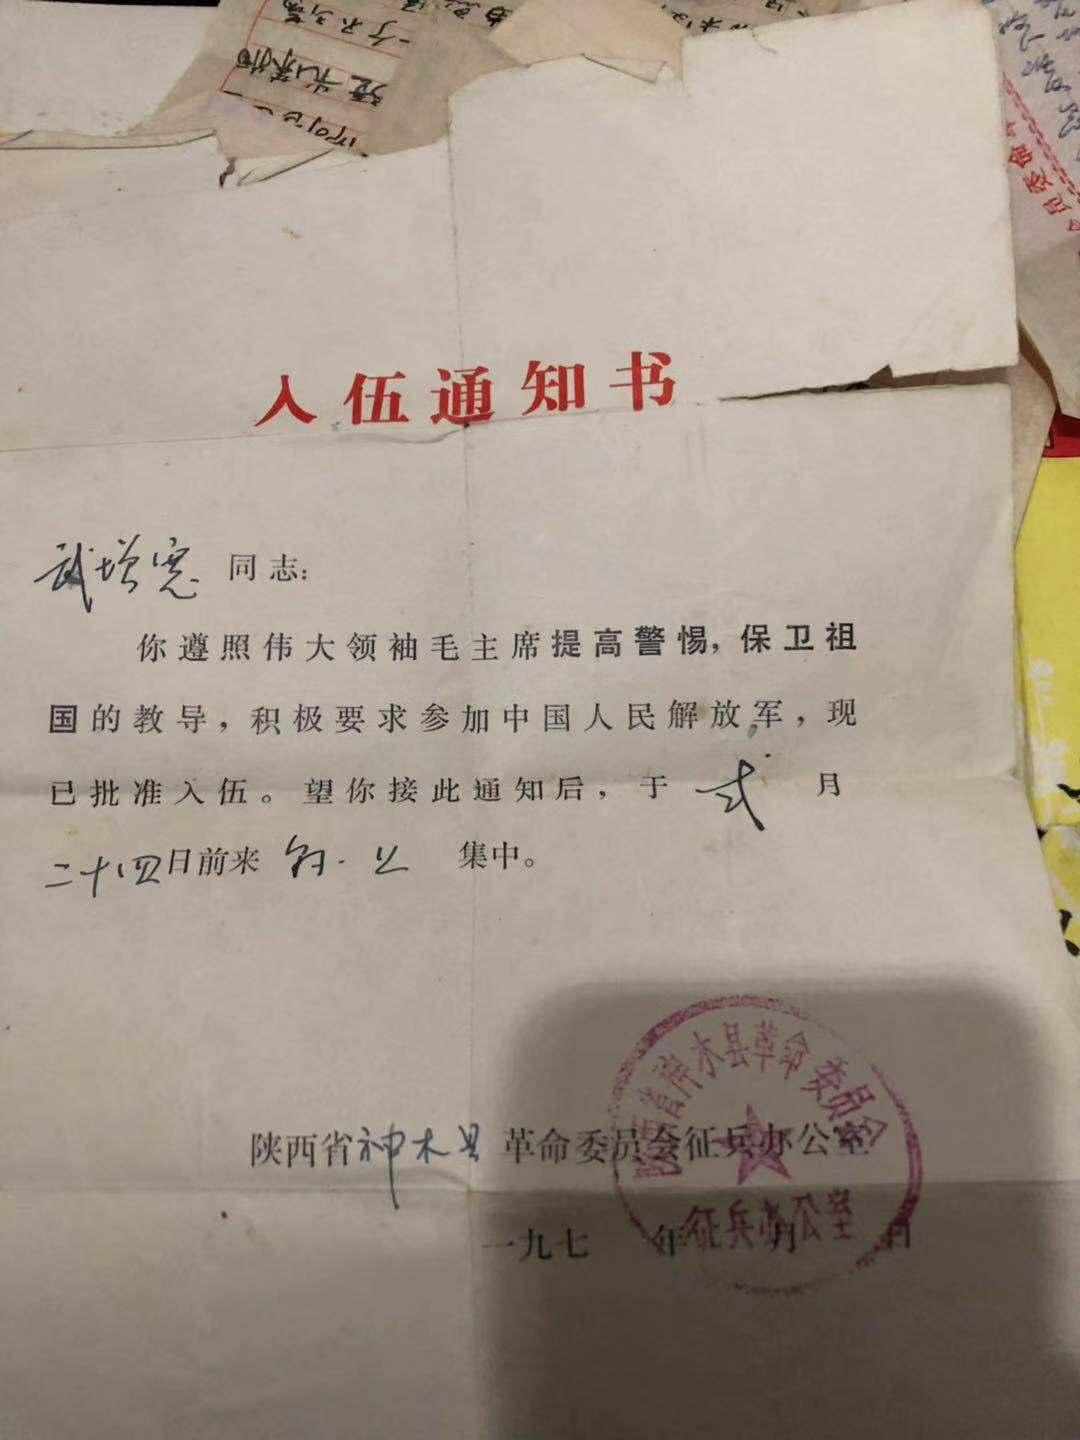 入伍通知书
武增宽 同志：
你遵照伟大领袖毛主席提高警惕，保卫祖
国的教导，积极要求参加中国人民解放军，现
已批准入伍。望你接此通知后，于 弍 月
二十四日前来 集中。
陕西省神木县革命委员会征兵办公室
一九七 年 月 日
陕西省神木县革命委员会
征兵办公室